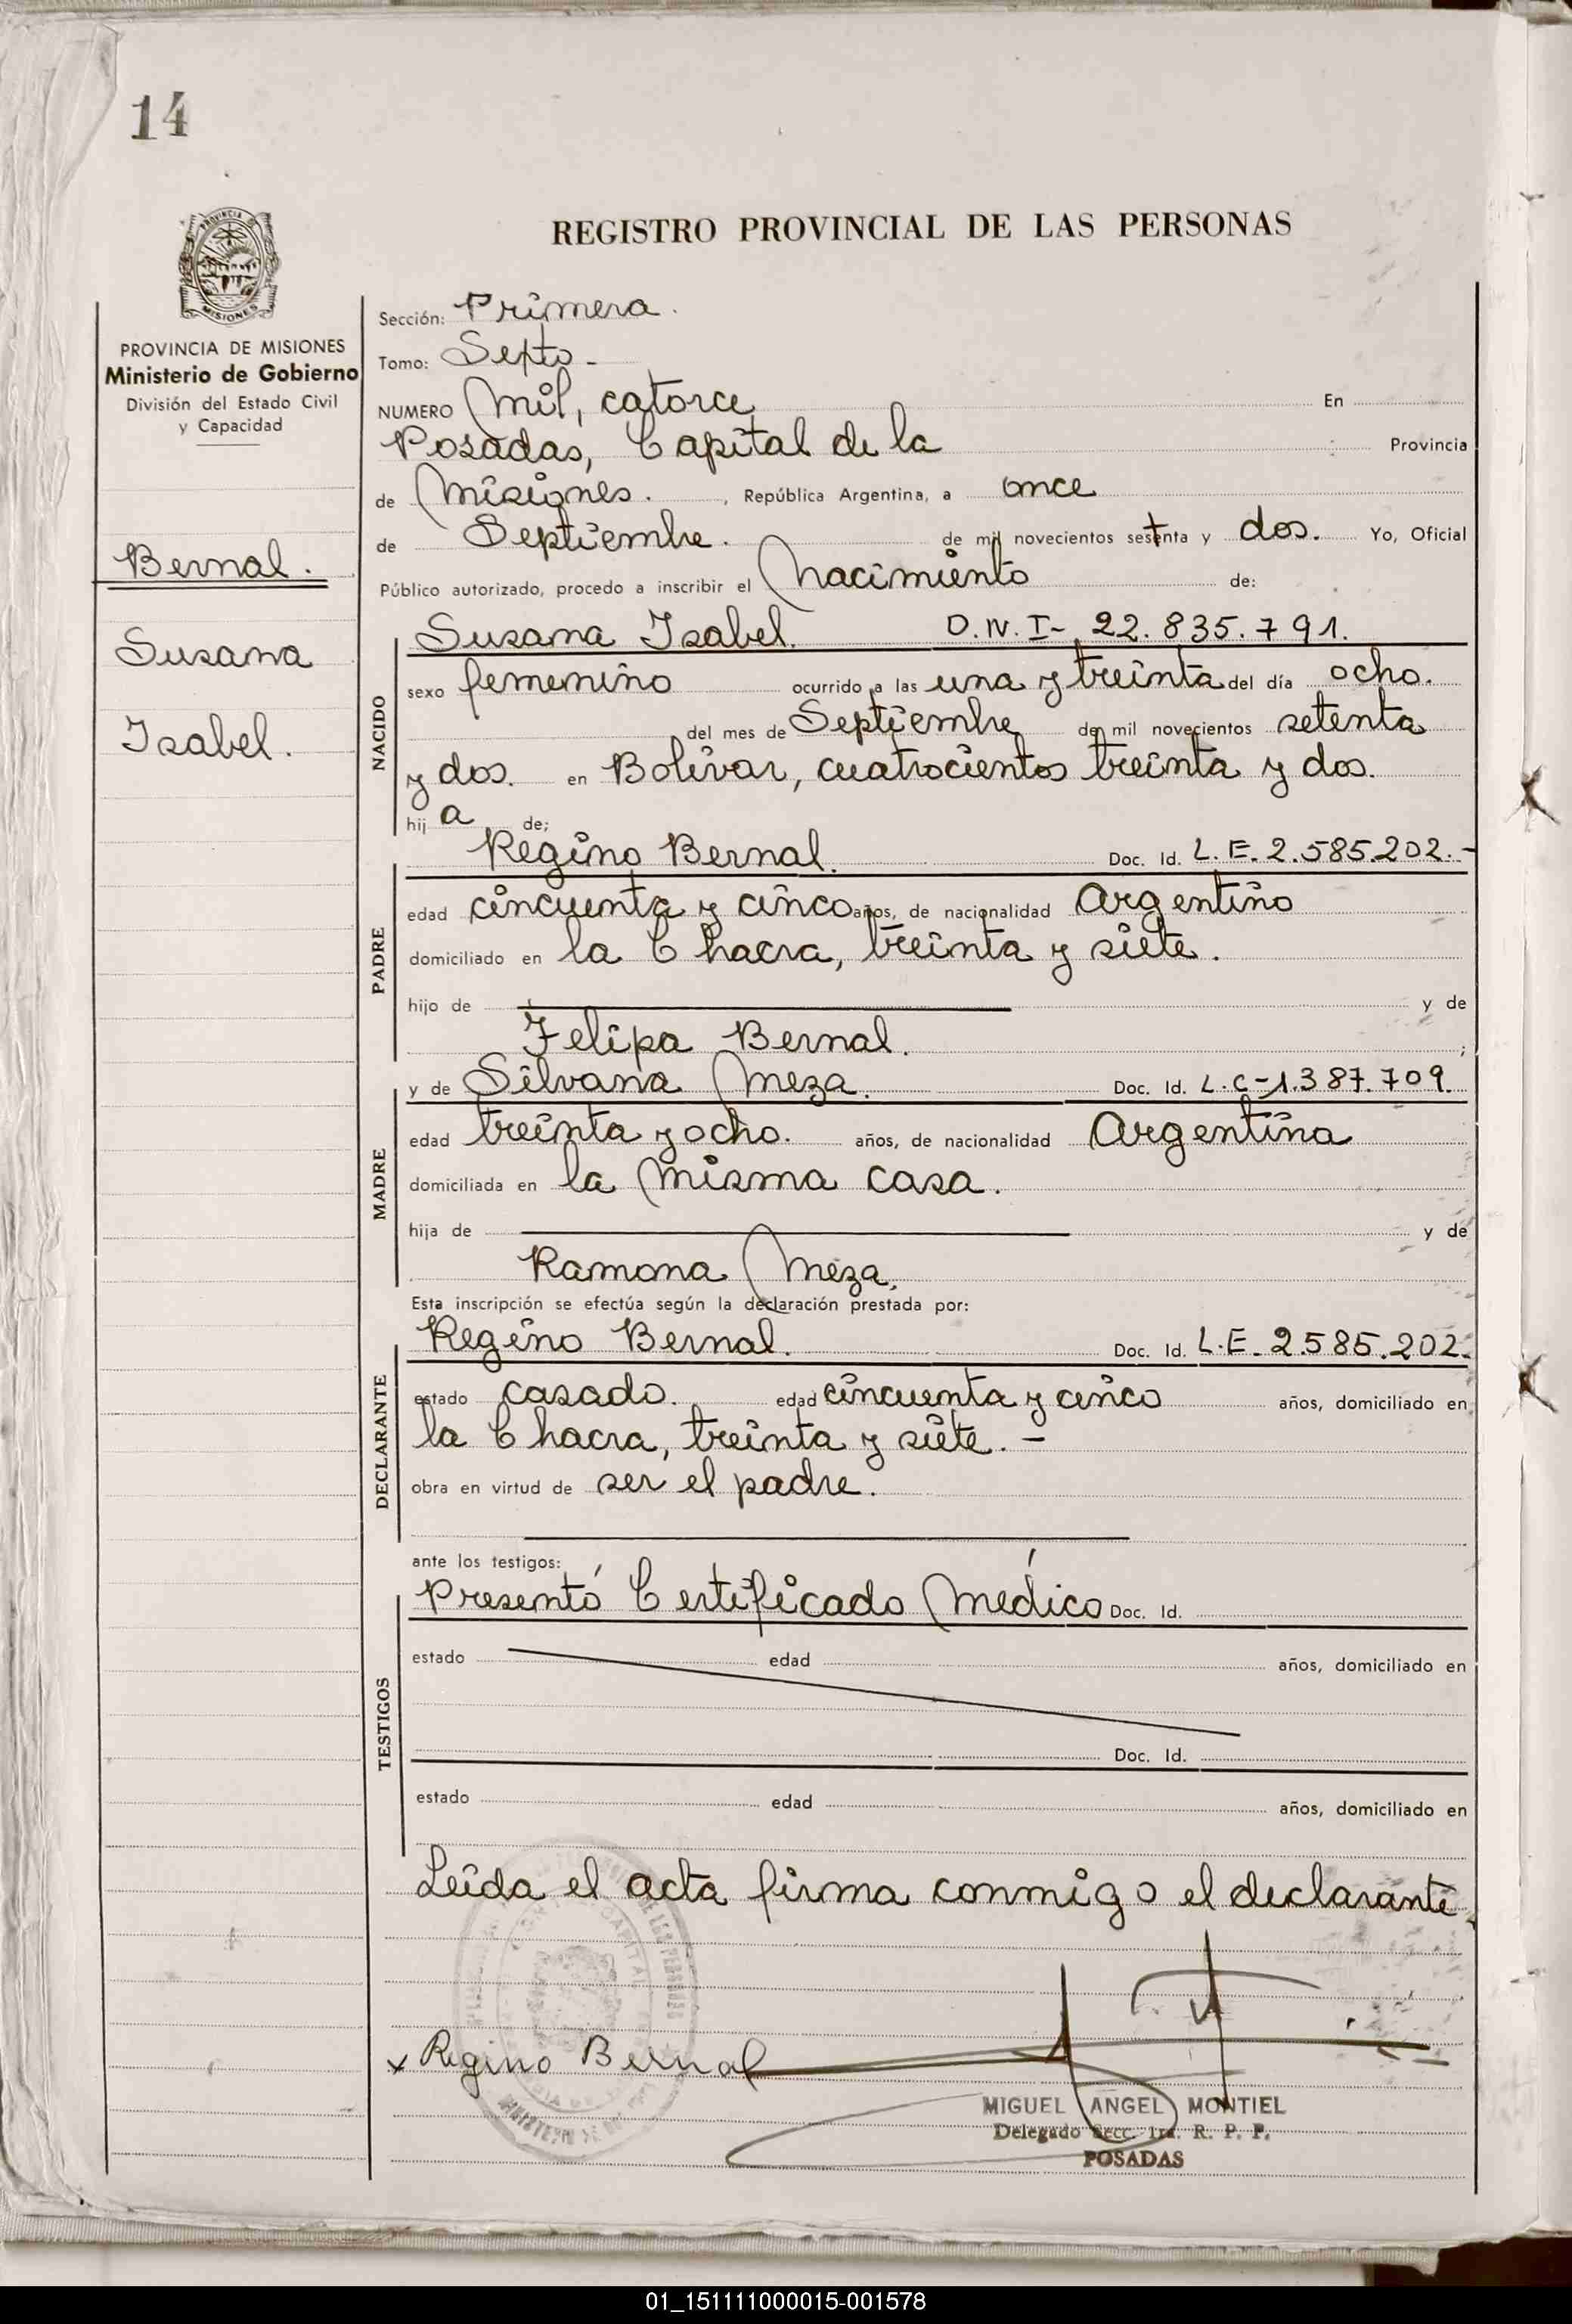 14
REGISTRO PROVINCIAL DE LAS PERSONAS
PROVINCIA DE MISIONES
Ministerio de Gobierno
División del Estado Civil
y Capacidad
Bernal.
Susana
Isabel.
Sección: Primera.
Tomo: Septo-
NUMERO Mil, catorce En
Posadas, Capital de la Provincia
de Misiones. , República Argentina, a once
de Septiembre. de mil novecientos setenta y dos. Yo, Oficial
Público autorizado, procedo a inscribir el Nacimiento de:
NACIDO
Susana Isabel. D.N.I- 22.835.791.
sexo femenino ocurrido a las una y treinta del día ocho.
del mes de Septiembre de mil novecientos setenta
y dos. en Bolívar, cuatrocientos treinta y dos.
hij a de;
PADRE
Regino Bernal. Doc. Id. L.E. 2.585.202.-
edad cincuenta y cinco años, de nacionalidad Argentino
domiciliado en la Chacra, treinta y siete.
hijo de y de
Felipa Bernal. ;
MADRE
y de Silvana Meza. Doc. Id. L.C-1.387.709.
edad treinta y ocho. años, de nacionalidad Argentina
domiciliada en la misma casa.
hija de y de
Ramona Meza.
Esta inscripción se efectúa según la declaración prestada por:
DECLARANTE
Regino Bernal. Doc. Id. L.E. 2.585.202.
estado casado. edad cincuenta y cinco años, domiciliado en
la Chacra, treinta y siete. -
obra en virtud de ser el padre.
ante los testigos:
TESTIGOS
Presentó Certificado Médico Doc. Id.
estado edad años, domiciliado en
Doc. Id.
estado edad años, domiciliado en
Leída el acta firma conmigo el declarante.
x Regino Bernal
MIGUEL ANGEL MONTIEL
Delegado Secc. 1ra. R. P. P.
POSADAS
01_151111000015-001578